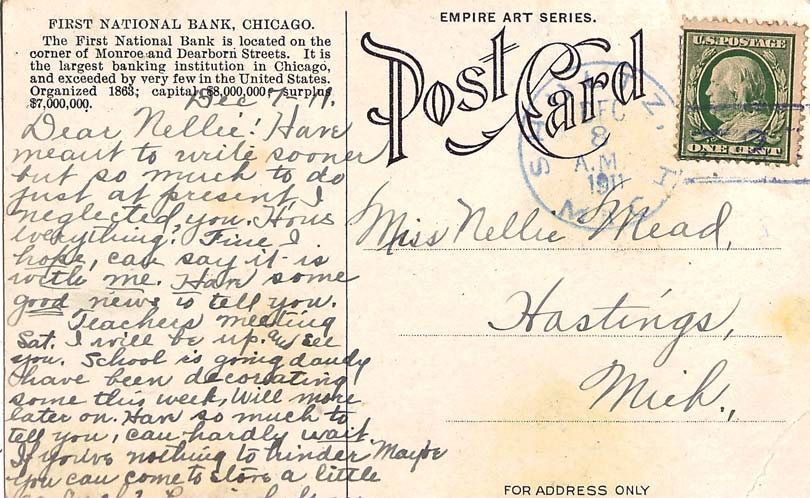 FIRST NATIONAL BANK, CHICAGO.
The First National Bank is located on the
corner of Monroe and Dearborn Streets. It is
the largest banking institution in Chicago,
and exceeded by very few in the United States.
Organized 1863; capital $8,000,000; surplus
$7,000,000.
Dec 7-11.
Dear Nellie! Have
meant to write sooner
but so much to do
just at present, I
neglected you. Hows
everything? Fine I
hope, can say it is
with me. Have some
good news to tell you.
Teachers meeting
Sat. I will be up. see
you. School is going dandy
have been decorating
some this week, Will more
later on. Have so much to
tell you, can hardly wait.
If you've nothing to hinder Maybe
you can come to store a little
EMPIRE ART SERIES.
Post Card
DEC
8
A.M.
1911
MICH
U.S. POSTAGE
ONE CENT
Miss Nellie Mead,
Hastings,
Mich.,
FOR ADDRESS ONLY